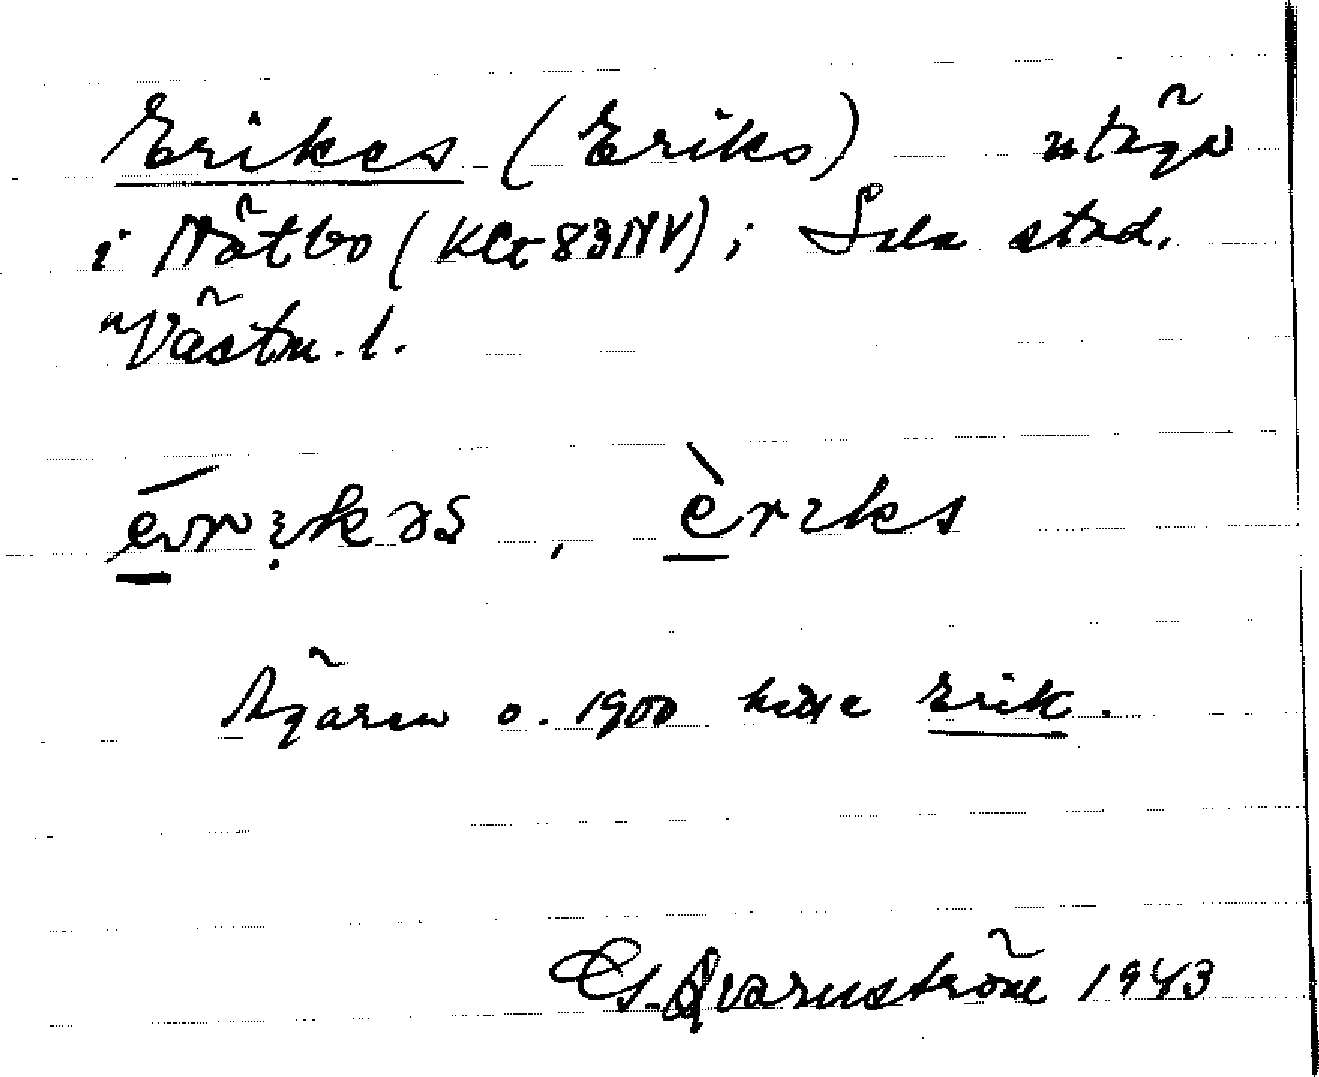 Erikes (Eriks) utäga
i Nötbo (Kkt 83NV); Sala stad.
Västm. l.
èrikəs, èriks
Ägaren o. 1900 hette Erik.
Qvarnström 1943